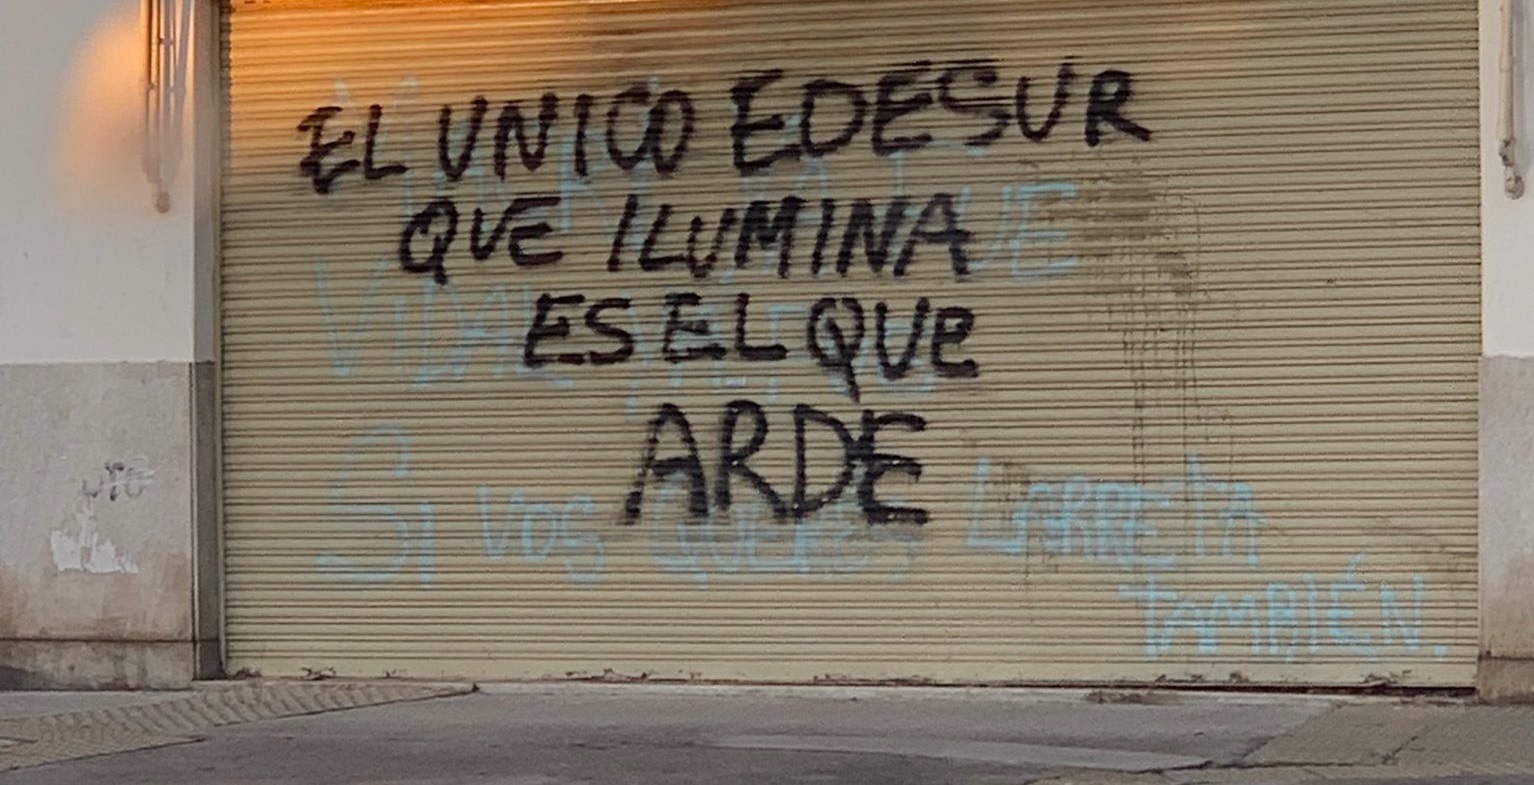 EL UNICO EDESUR
QUE ILUMINA
ES EL QUE
ARDE
UE
VIDAL
Si VOS QUERES LARRETA
TAMBIÉN.